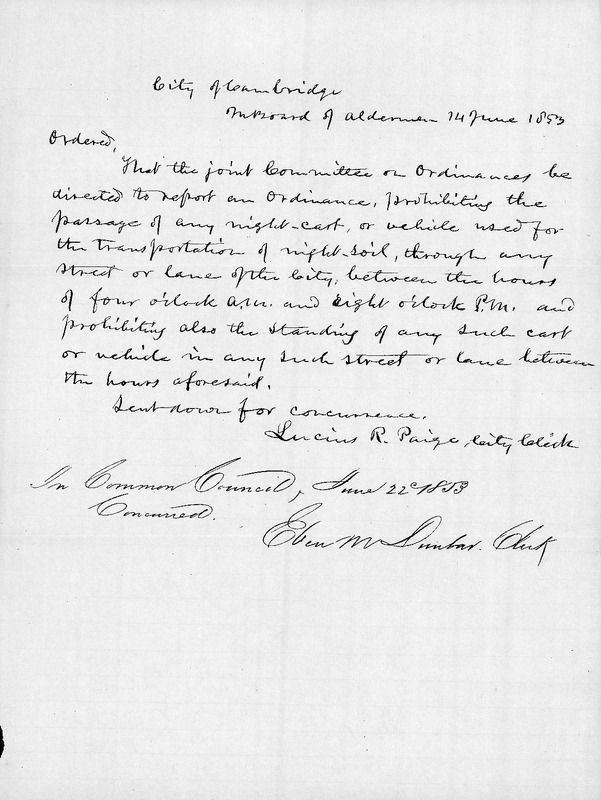 City of Cambridge
In Board of Aldermen 14 June 1853
Ordered,
That the joint Committee on Ordinances be
directed to report an Ordinance, prohibiting the
passage of any night-cart, or vehicle used for
the transportation of night-soil, through any
street or lane of the City, between the hours
of four o'clock A.M. and eight o'clock P.M. and
prohibiting also the standing of any such cart
or vehicle in any such street or lane between
the hours aforesaid.
Sent down for concurrence.
Lucius R. Paige, City Clerk
In Common Council, June 22 1853
Concurred.
Eben M Dunbar. Clerk